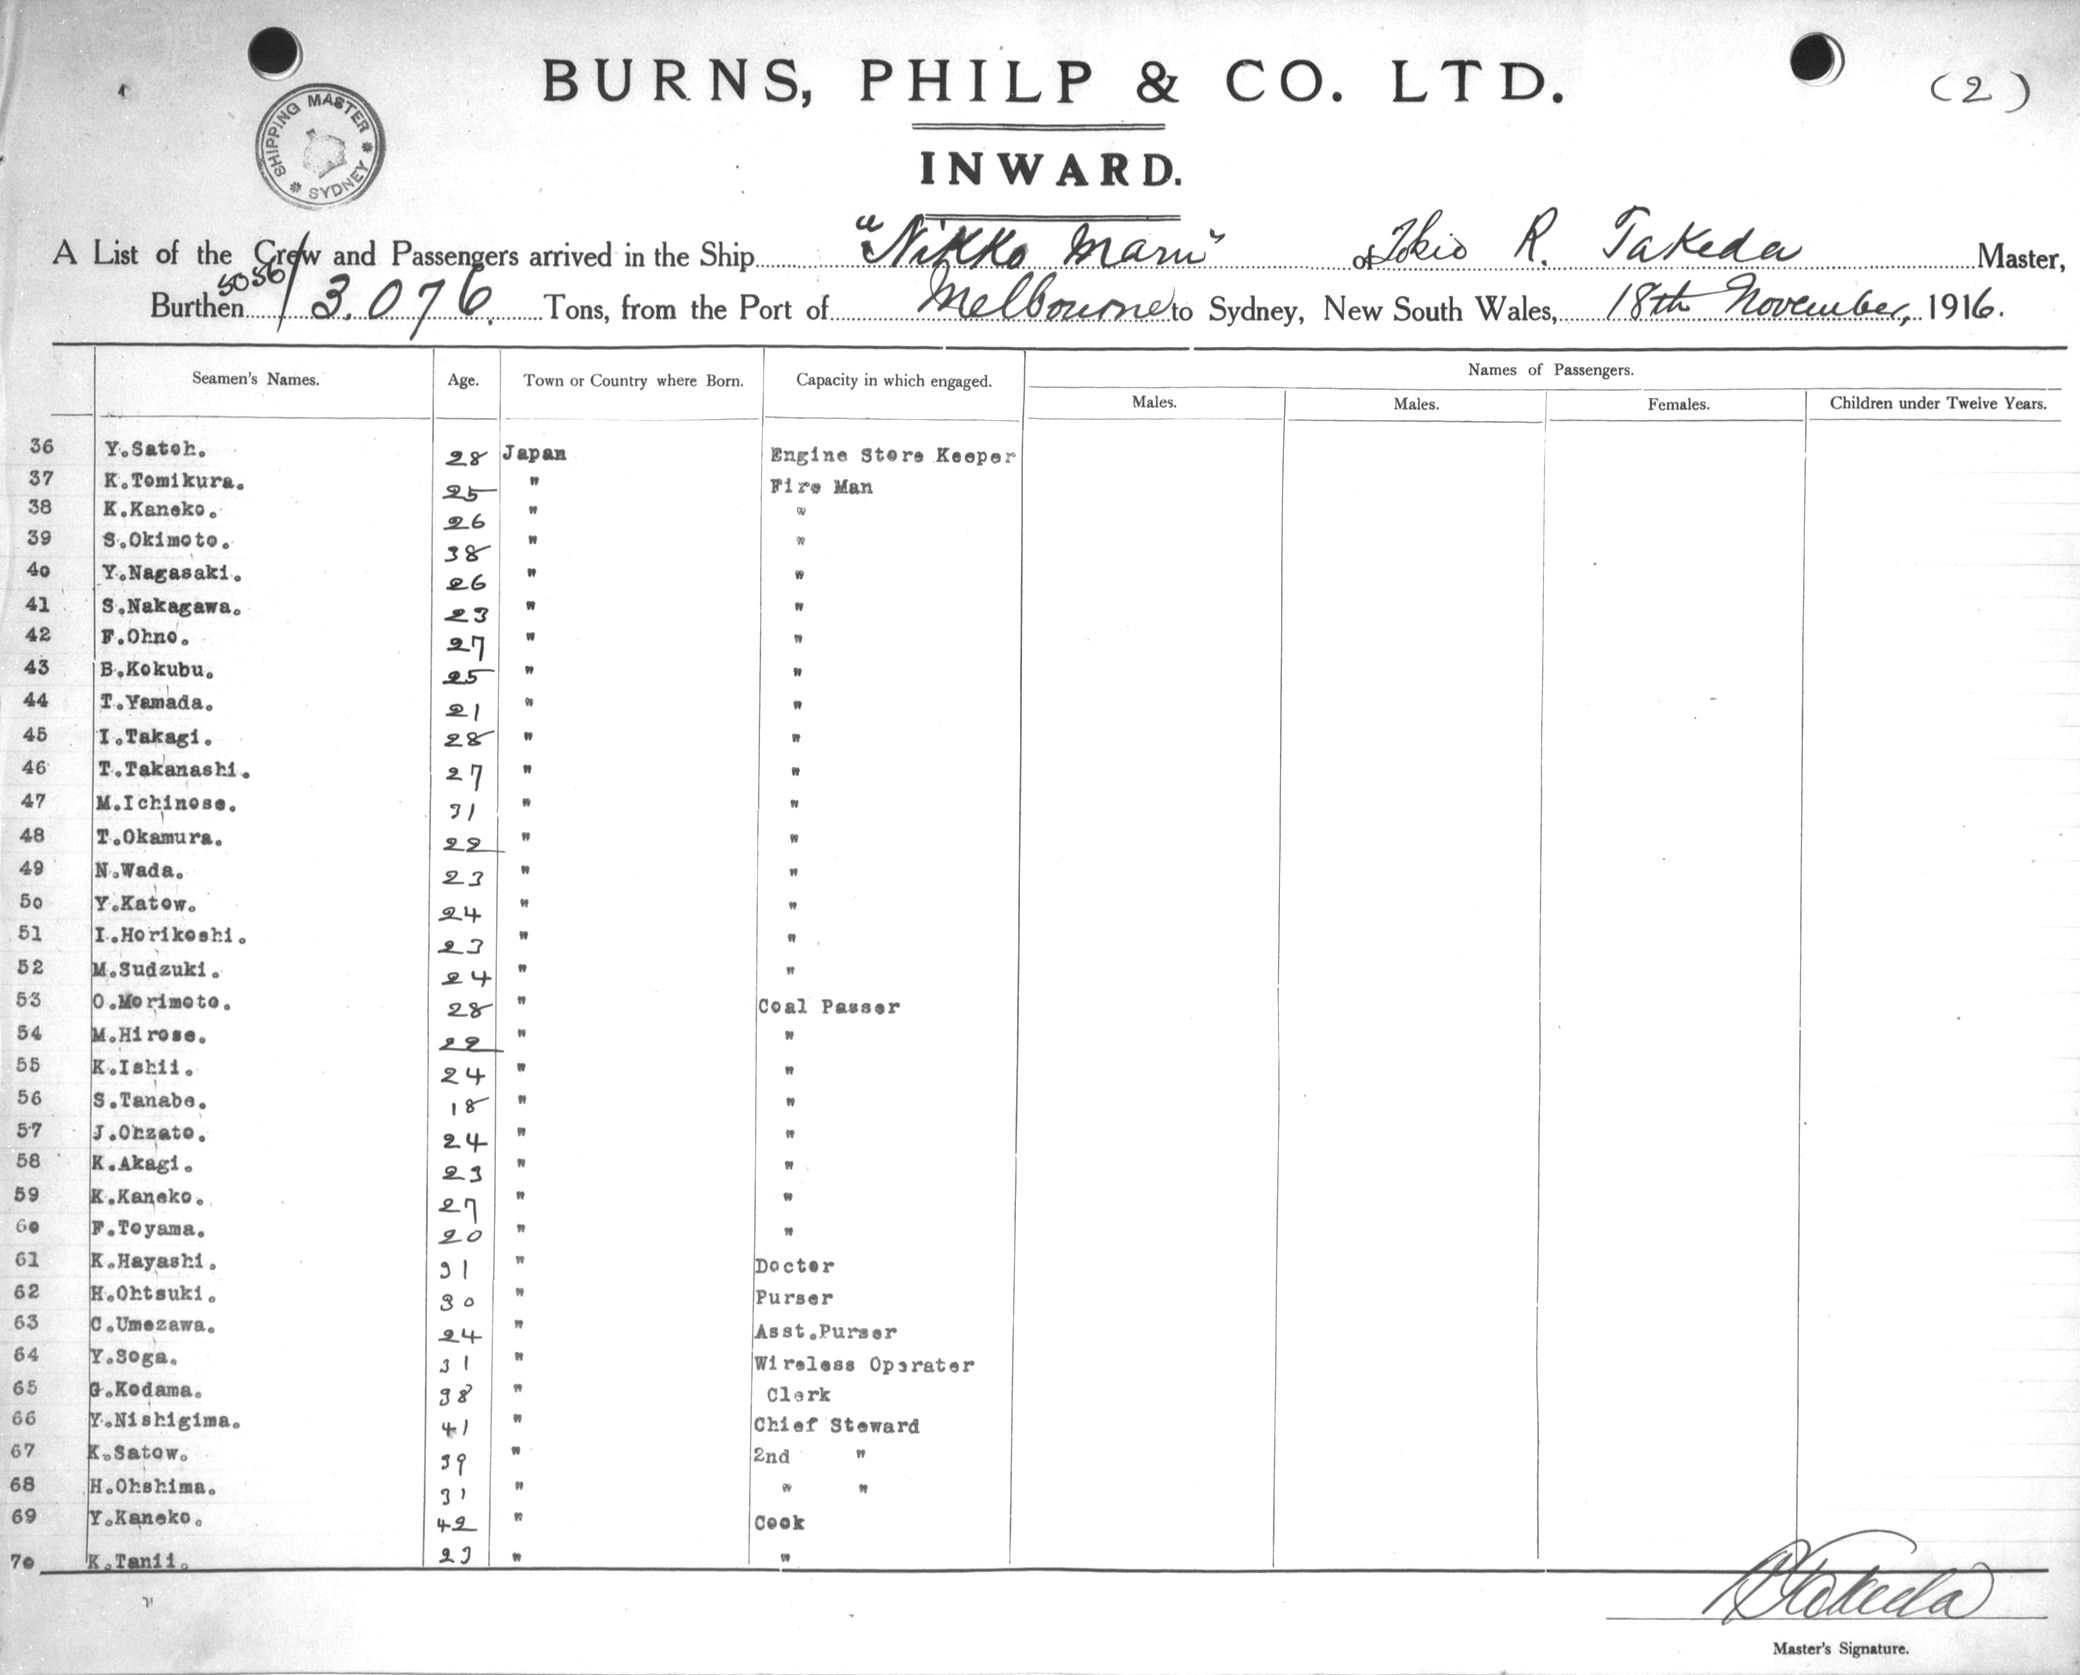 BURNS, PHILP & CO. LTD.
(2)
SHIPPING MASTER * SYDNEY *
INWARD.
A List of the Crew and Passengers arrived in the Ship "Nikko Maru" of Tokio R. Takeda Master,
Burthen 5056/3.076. Tons, from the Port of Melbourne to Sydney, New South Wales, 18th November, 1916.
Names of Passengers.
Seamen's Names. Age. Town or Country where Born. Capacity in which engaged.
Males. Males. Females. Children under Twelve Years.
36 Y.Satoh. 28 Japan Engine Store Keeper
37 K.Tomikura. 25 " Fire Man
38 K.Kaneko. 26 " "
39 S.Okimoto. 38 " "
40 Y.Nagasaki. 26 " "
41 S.Nakagawa. 23 " "
42 F.Ohno. 27 " "
43 B.Kokubu. 25 " "
44 T.Yamada. 21 " "
45 I.Takagi. 28 " "
46 T.Takanashi. 27 " "
47 M.Ichinose. 31 " "
48 T.Okamura. 22 " "
49 N.Wada. 23 " "
50 Y.Katow. 24 " "
51 I.Horikoshi. 23 " "
52 M.Sudzuki. 24 " "
53 O.Morimoto. 28 " Coal Passer
54 M.Hirose. 22 " "
55 K.Ishii. 24 " "
56 S.Tanabe. 18 " "
57 J.Ohzato. 24 " "
58 K.Akagi. 23 " "
59 K.Kaneko. 27 " "
60 F.Toyama. 20 " "
61 K.Hayashi. 31 " Doctor
62 H.Ohtsuki. 30 " Purser
63 C.Umezawa. 24 " Asst.Purser
64 Y.Soga. 31 " Wireless Operater
65 G.Kodama. 38 " Clerk
66 Y.Nishigima. 41 " Chief Steward
67 K.Satow. 39 " 2nd "
68 H.Ohshima. 31 " " "
69 Y.Kaneko. 42 " Cook
70 K.Tanii. 23 " "
R Takeda
Master's Signature.